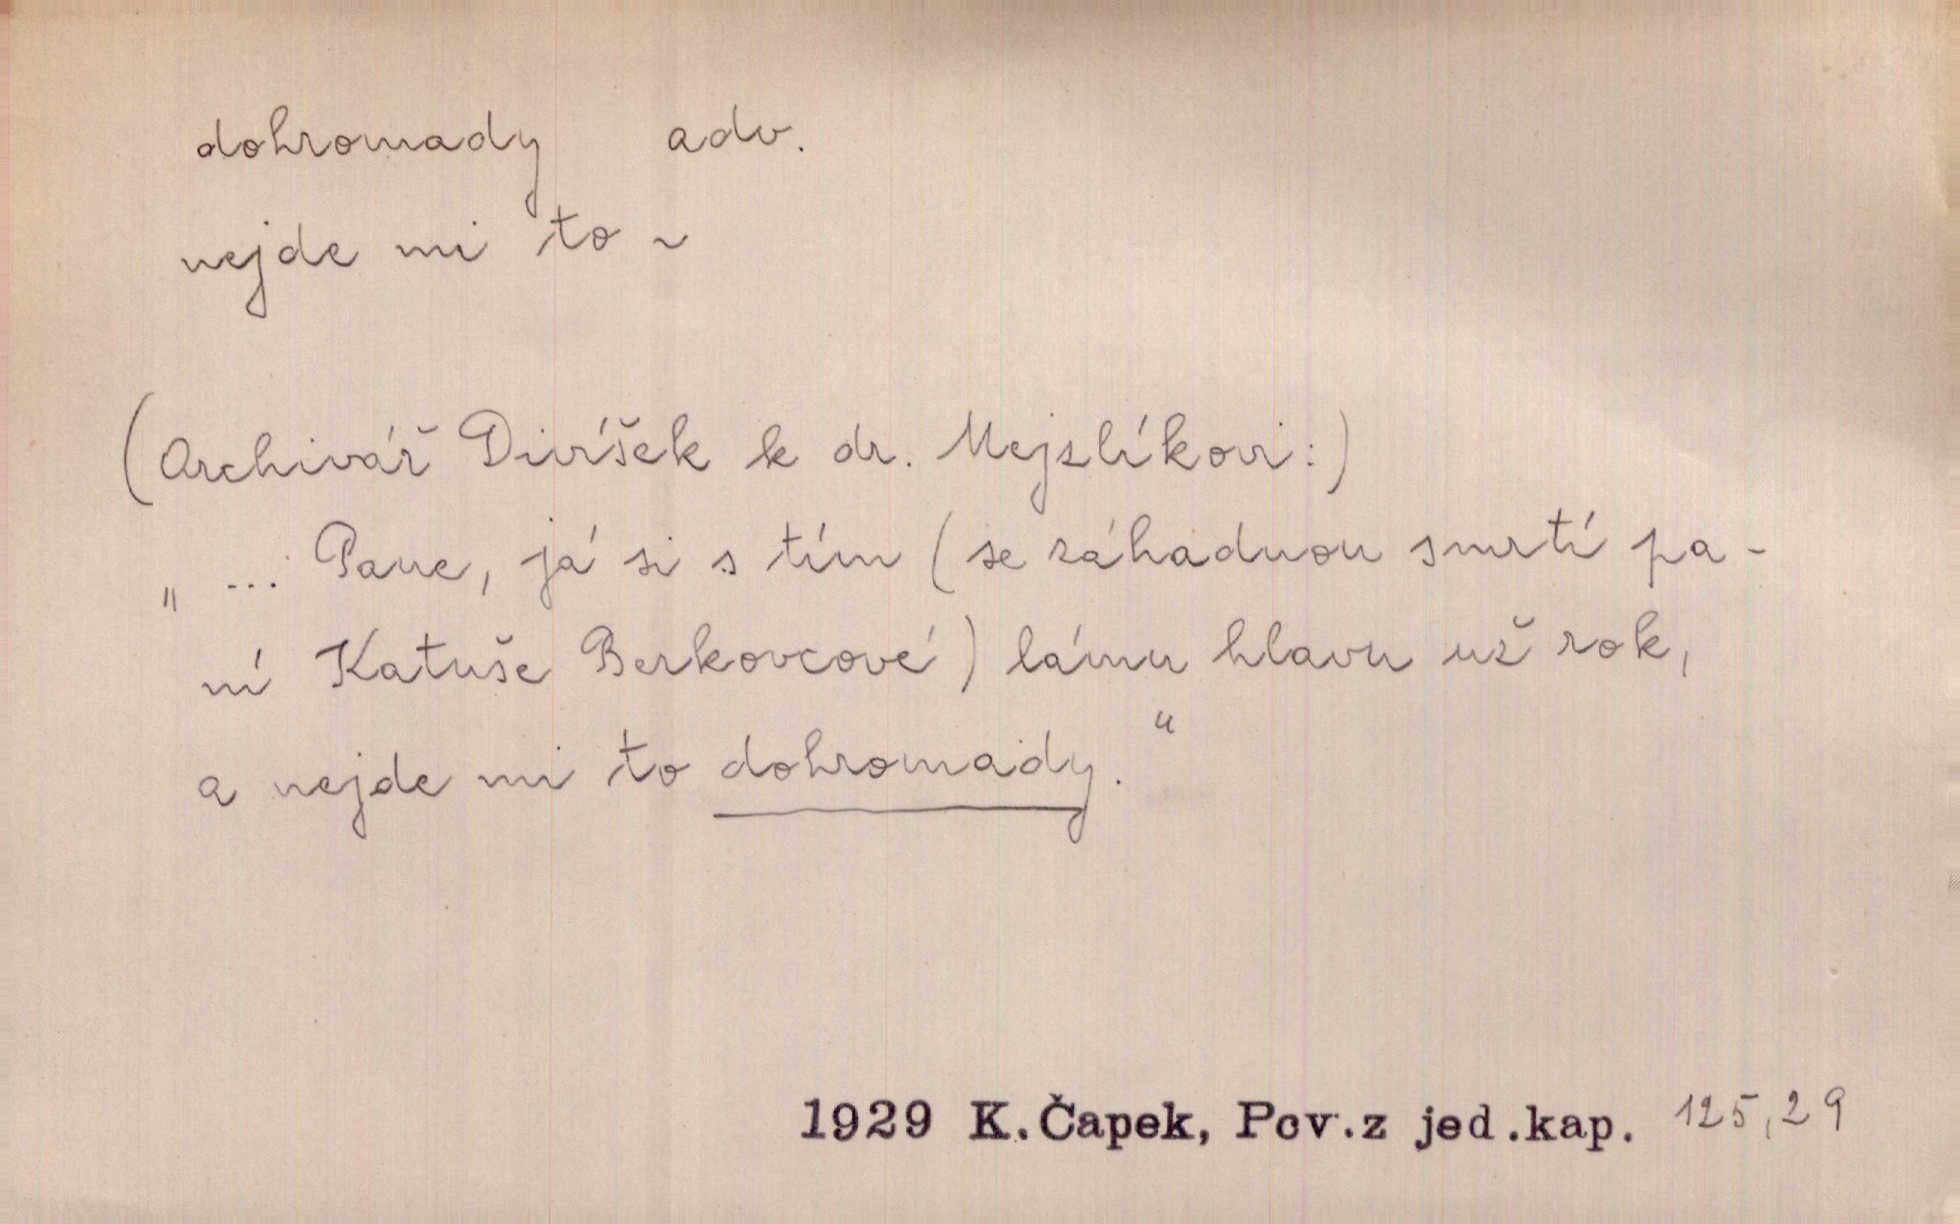 dohromady adv.
nejde mi to ~
(Archivář Divíšek k dr. Mejzlíkovi:)
„ ... Pane, já si s tím (se záhadnou smrtí pa-
ní Katuše Berkovcové) lámu hlavu už rok,
a nejde mi to dohromady.“
1929 K.Čapek, Pov.z jed.kap. 125,29